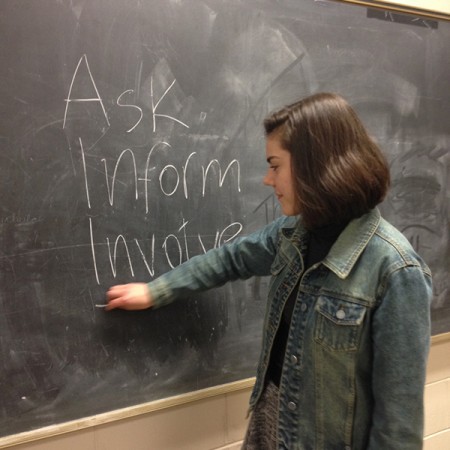 Ask.
Inform
Involve